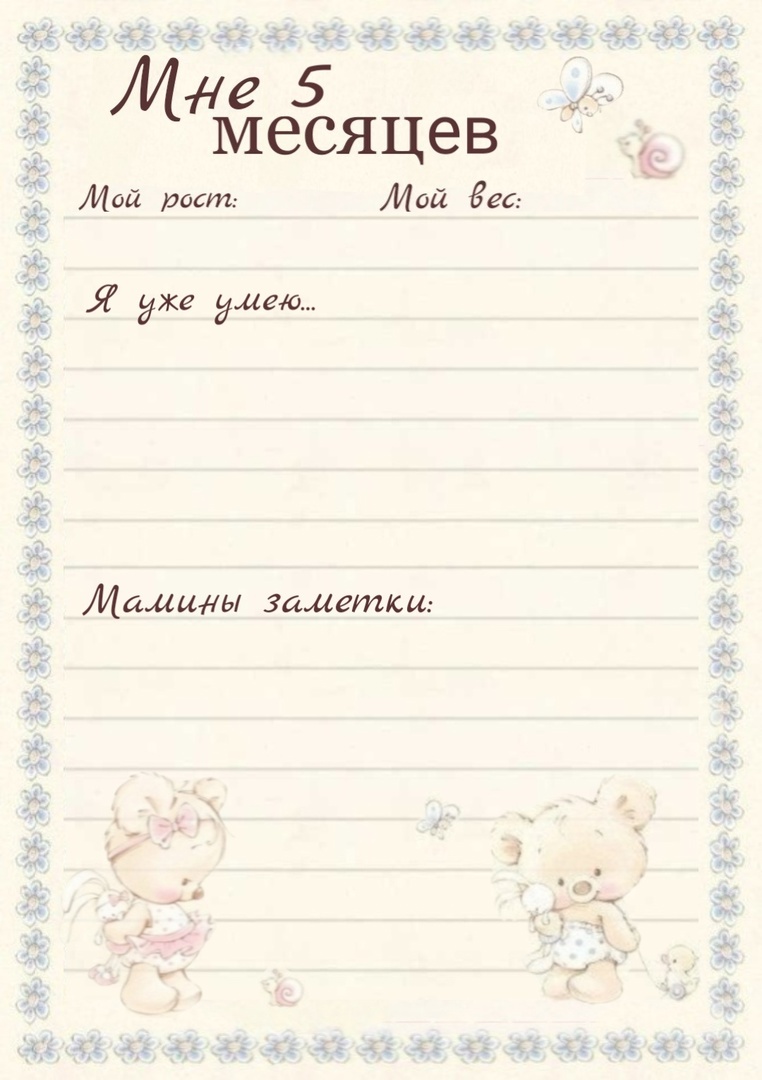 Мне 5
месяцев
Мой рост: Мой вес:
Я уже умею...
Мамины заметки: